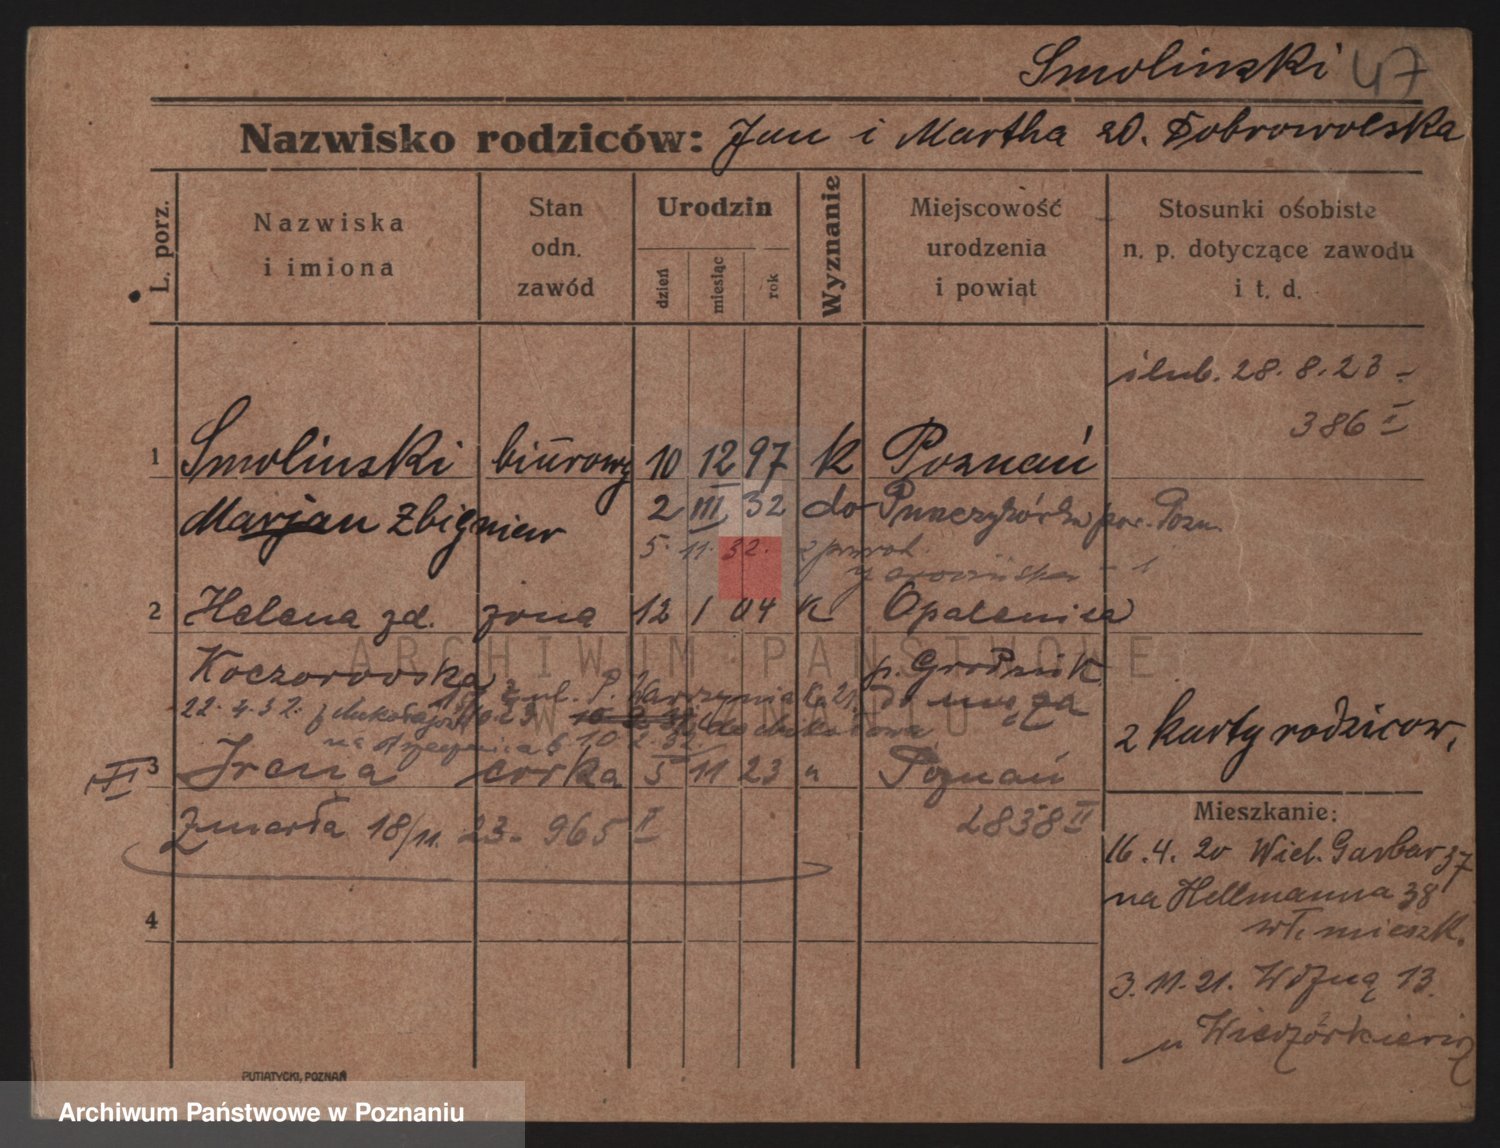 Smolinski 47
Nazwisko rodziców: Jan i Martha zd. Dobrowolska
L. porz.
Nazwiska
i imiona
Stan
odn.
zawód
Urodzin
dzień
miesiąc
rok
Wyznanie
Miejscowość
urodzenia
i powiat
Stosunki osobiste
n. p. dotyczące zawodu
i t. d.
ślub. 28. 8. 23 -
386 II
1 Smolinski biurowy 10 12 97 k Poznań
Marjan Zbigniew 2 III 32 do pow. Pozn.
5. 11. 32. z powrot.
2 Helena zd. żona 12 1 04 k Opalenica
Koczorowska p. Grodzisk
do męża
22. 4. 32.
10. 2. 32
z karty rodzicow.
3 Irena corka 5 11 23 " Poznań
VI
Zmarła 18/11. 23 - 965 II 2838 II
4
Mieszkanie:
16. 4. 20 Wiel. Garbar 37
na Hellmanna 38
wł. mieszk.
3. 11. 21. Woźną 13.
u Wieczorkiewicz
ARCHIWUM PAŃSTWOWE
W POZNANIU
PUTIATYCKI, POZNAŃ
Archiwum Państwowe w Poznaniu